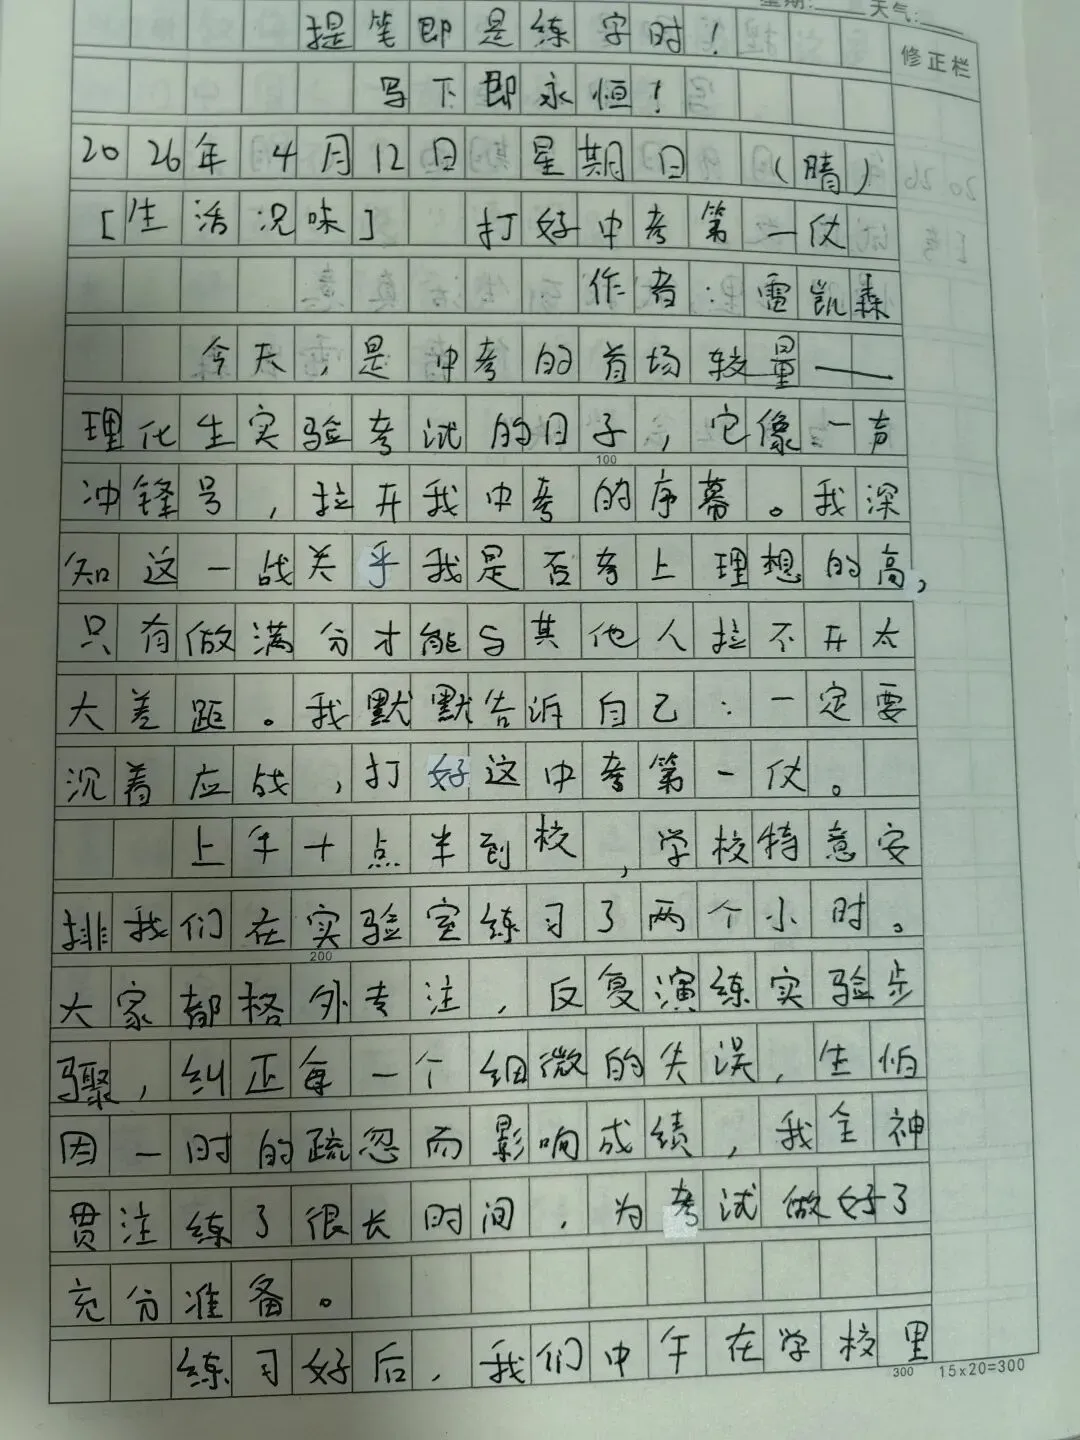 星期: 天气:
修正栏
提笔即是练字时！
写下即永恒！
2026年 4月12日 星期日 （晴）
[生活况味] 打好中考第一仗
作者：雷凯森
今天，是中考的首场较量——
理化生实验考试的日子，它像一声
100
冲锋号，拉开我中考的序幕。我深
知这一战关乎我是否考上理想的高，
只有做满分才能与其他人拉不开太
大差距。我默默告诉自己：一定要
沉着应战，打好这中考第一仗。
上午十点半到校，学校特意安
排我们在实验室练习了两个小时。
200
大家都格外专注，反复演练实验步
骤，纠正每一个细微的失误，生怕
因一时的疏忽而影响成绩，我全神
贯注练了很长时间，为考试做好了
充分准备。
练习好后，我们中午在学校里
300 15×20=300